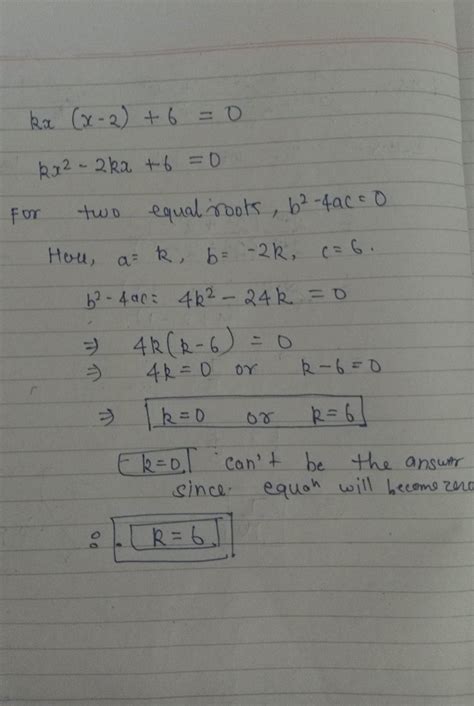 kx (x-2) + 6 = 0
kx² - 2kx + 6 = 0
For two equal roots, b²-4ac = 0
Here, a= k, b= -2k, c= 6.
b²-4ac = 4k² - 24k = 0
⇒ 4k(k-6) = 0
⇒ 4k=0 or k-6=0
⇒ k=0 or k=6
k=0 can't be the answer
since equaⁿ will become zero
∴ k = 6